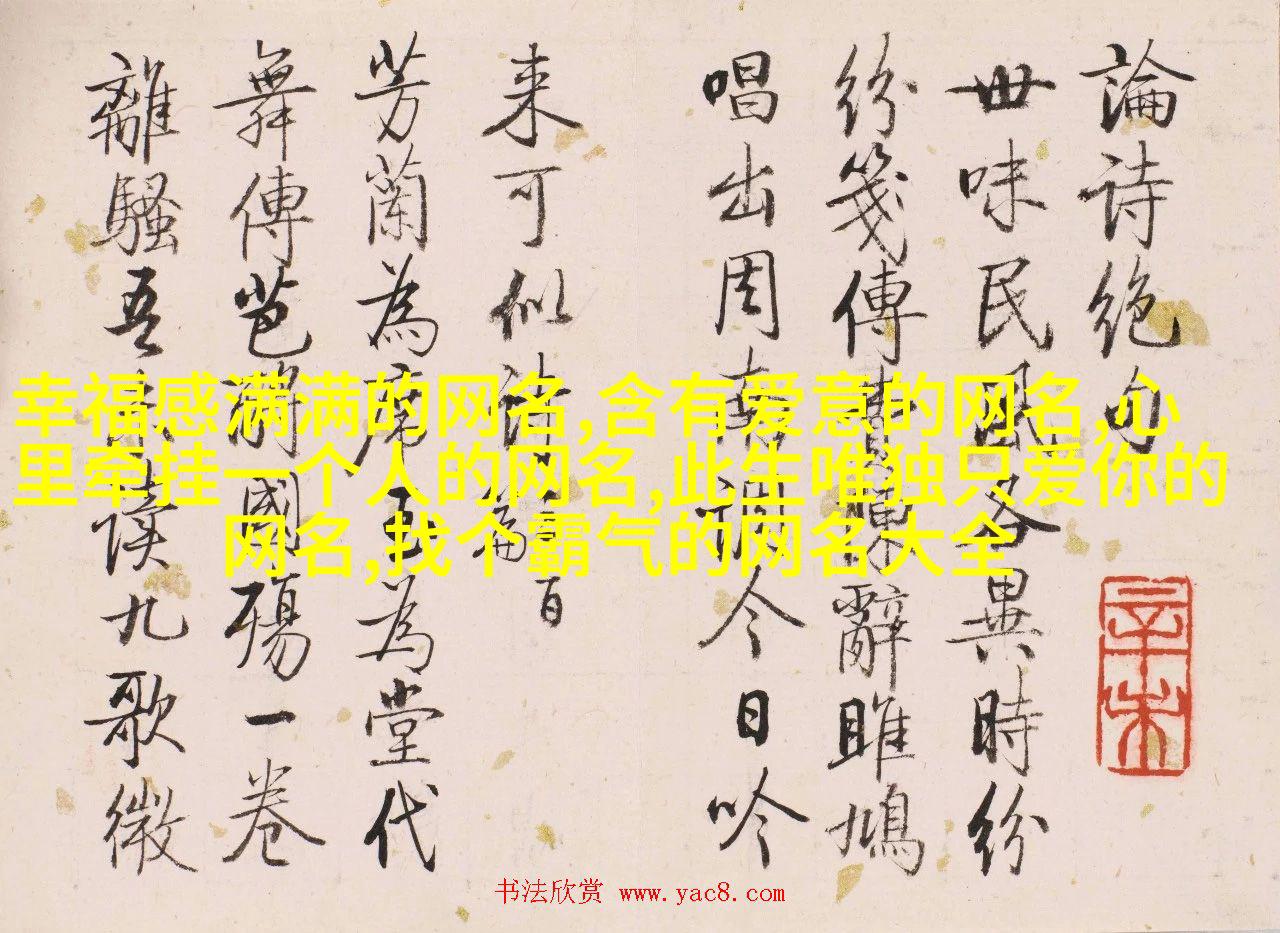 論诗绝句
世味民風各異時紛
紛箋傳辭雎鳩
唱出周南調今日吟
来可似诗篇百
芳蘭為席玉為堂代
舞傳芭國殤一卷
離騷吾读九歌微
辛未
幸福感满满的网名,含有爱意的网名,心
里牵挂一个人的网名,此生唯独只爱你的
网名,找个霸气的网名大全
书法欣赏 www.yac8.com